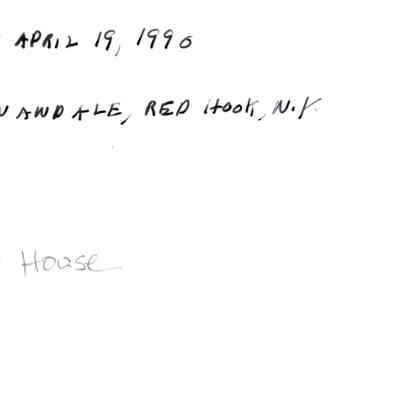 APRIL 19, 1990
NANDALE, RED HOOK, N.Y.
House